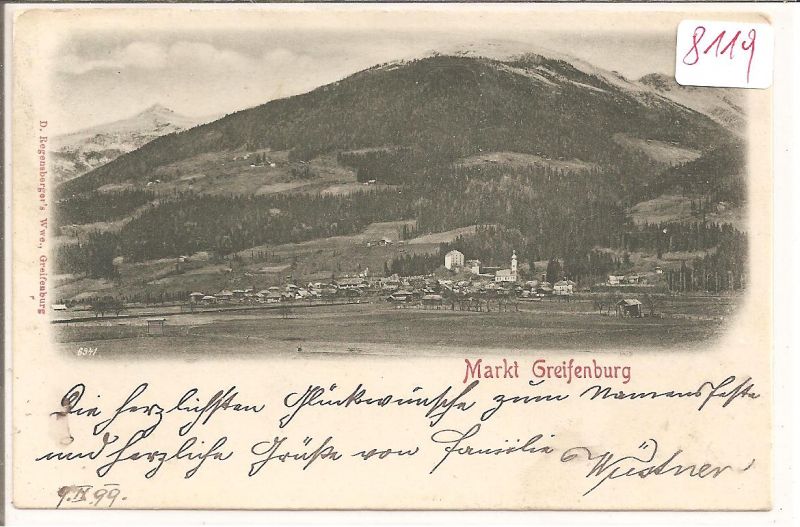 8119
D. Regensberger's Wwe., Greifenburg
6341
Markt Greifenburg
Die herzlichsten Glückwünsche zum Namensfeste
und herzliche Grüße von Familie Wüstner
9.IX.99.